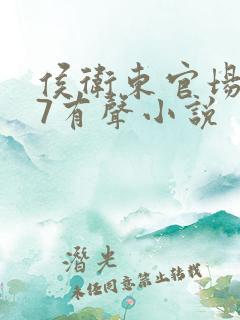 侯衛東官場
7有聲小説
潛光
未经同意禁止转载